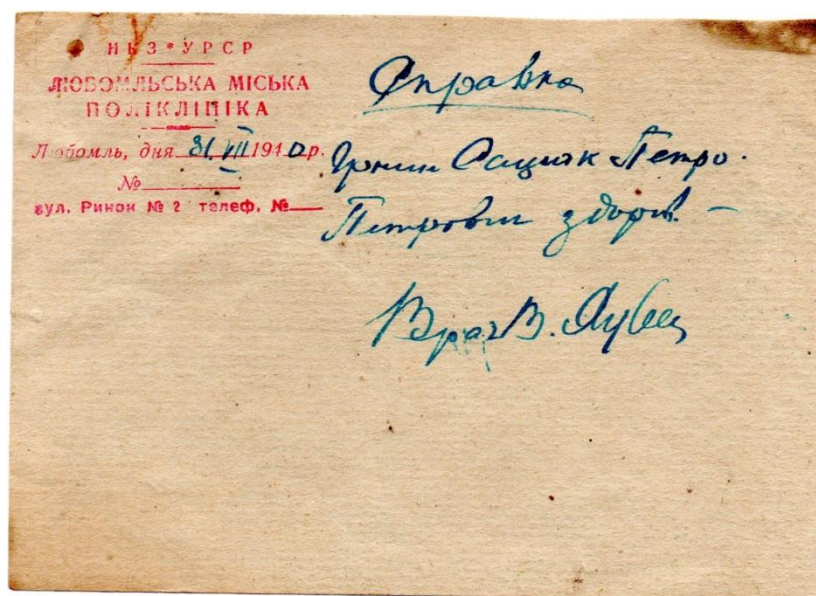 НКЗ УРСР
ЛЮБОМЛЬСЬКА МІСЬКА
ПОЛІКЛІНІКА
Любомль, дня 31 VII 1940 р.
№
вул. Ринок № 2 телеф. №
Справка
Грнин Сацюк Петро
Петрович здоров. –
Врач В.